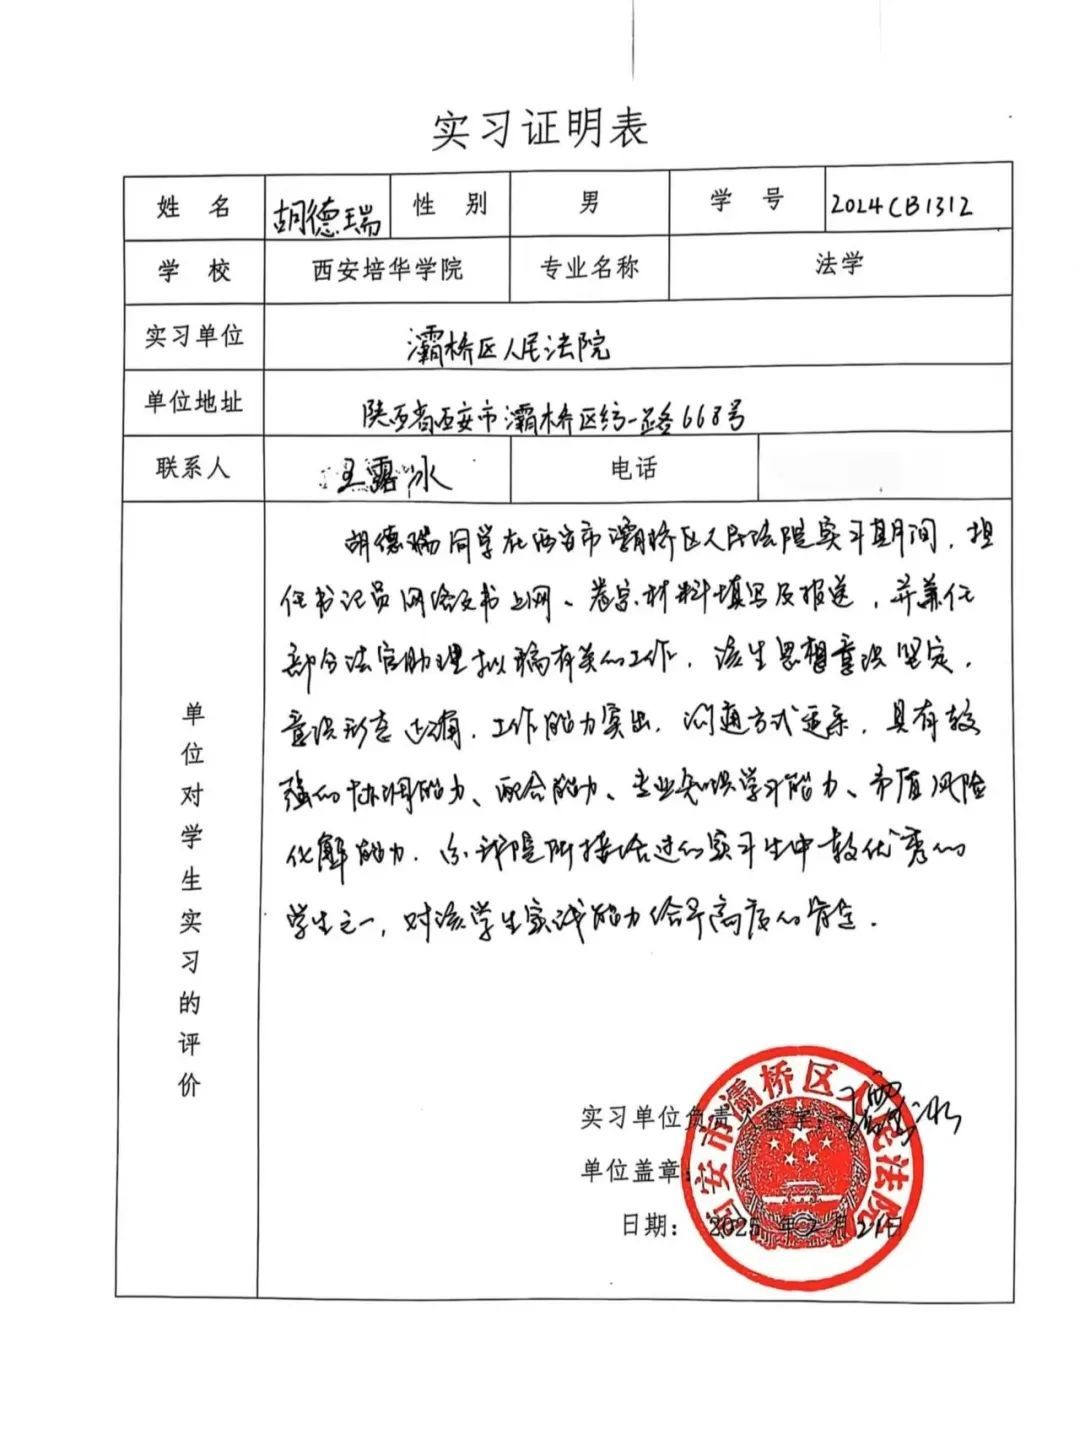 实习证明表
姓 名 胡德瑞 性 别 男 学 号 2024CB1312
学 校 西安培华学院 专业名称 法学
实习单位 灞桥区人民法院
单位地址 陕西省西安市灞桥区纺一路668号
联系人 王露冰 电话
单位对学生实习的评价
胡德瑞同学在西安市灞桥区人民法院实习期间，担
任书记员网络文书上网、卷宗材料填写及报送，并兼任
部分法官助理拟稿有关的工作，该生思想意识坚定，
意识形态正确，工作能力突出，沟通方式 ，具有较
强的协调能力、配合能力、专业知识学习能力、矛盾风险
化解能力，系我院所接洽过的实习生中较优秀的
学生之一，对该学生实践能力给予高度的肯定.
实习单位负责人签字：王露冰
单位盖章：
日期： 2025 年2月21日
西安市灞桥区人民法院